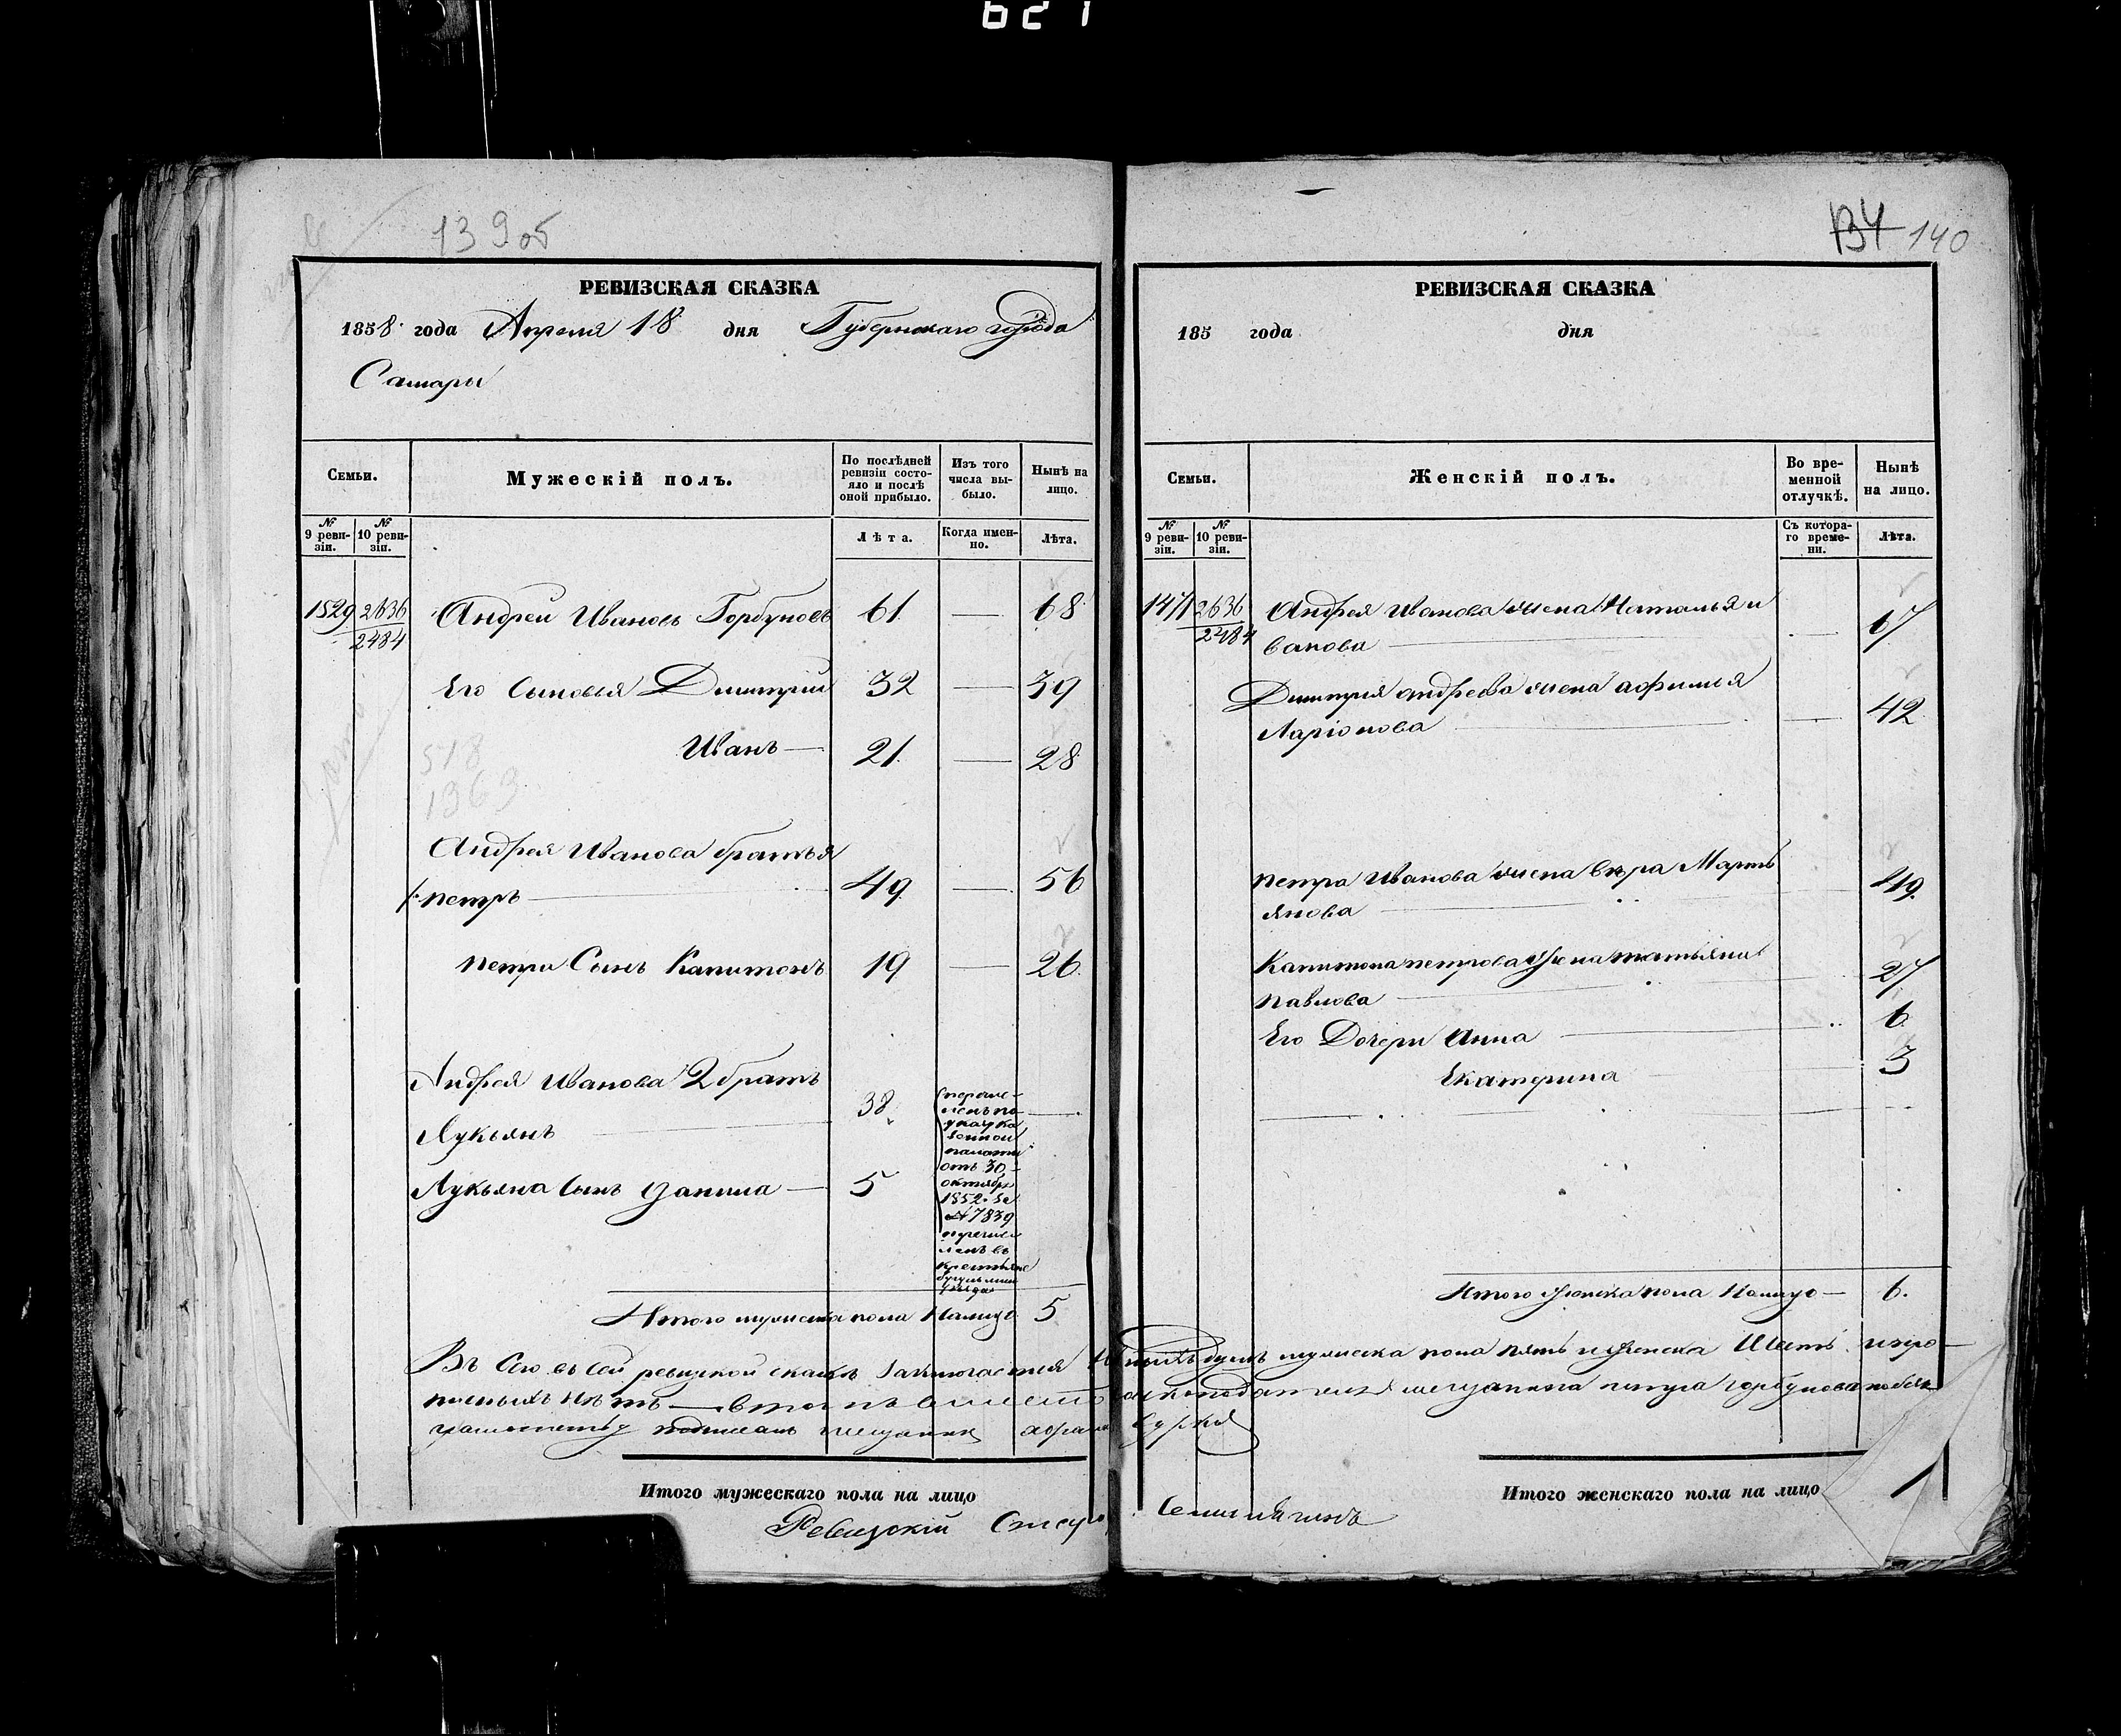 627
139об
РЕВИЗСКАЯ СКАЗКА
1858 года Апреля 18 дня Губернскаго города
Самары
Семьи.
Мужескій полъ.
По послѣдней ревизіи состояло и послѣ оной прибыло.
Изъ того числа выбыло.
Нынѣ на лицо.
№ 9 ревизіи.
№ 10 ревизіи.
Лѣта.
Когда именно.
Лѣта.
1529 2636 Андрей Ивановъ Горбуновъ 61. — 68
2484
Его Сыновья Дмитрий 32 — 39
Иванъ — 21. — 28
518
1363
Андрея Иванова братья
1. петръ — 49 — 56
петра Сынъ Капитонъ 19 — 26.
Андрея Иванова 2 братъ
Лукьянъ — 38 —
Лукьяна Сынъ Данила — 5
перечис-
ленъ по
указу ка
зенной
палаты
отъ 30
октября
1852 за
№ 7839
перечис
ленъ въ
крестьяне
уезда
Итого мужеска пола Налицо 5
134 140
РЕВИЗСКАЯ СКАЗКА
185 года дня
Семьи.
Женскій полъ.
Во временной отлучкѣ.
Нынѣ на лицо.
№ 9 ревизіи.
№ 10 ревизіи.
Съ котораго времени.
Лѣта.
1471 2636 Андрея Иванова жена Наталья и
2484 ванова — — 67
Дмитрия андреева жена афимия
Ларіонова — — 42
петра Иванова жена вѣра Марть
янова — 49.
Капитона петрова жена татьяна
павлова — 27
Его Дочери Анна — 6
Екатерина 3
Итого женска пола Налицо — 6.
Въ Сею въ сей ревизкой сказкѣ заключается душъ мужеска пола пять и женска Шесть. и про-
писныхъ нѣтъ — мещанина петра горбунова
подписалъ мещанин
Итого мужескаго пола на лицо
Итого женскаго пола на лицо
Ревизскій